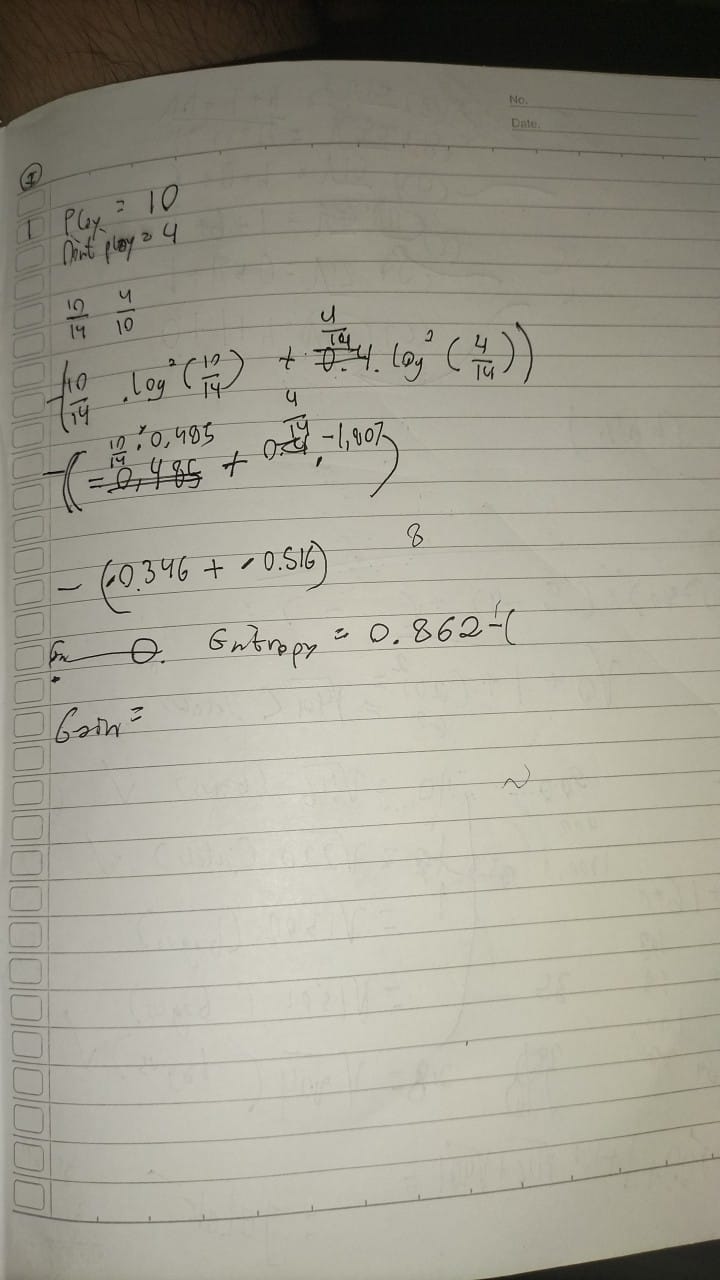 No.
Date.
I
1 Play = 10
Dont play = 4
10/14 4/10
-(10/14 . log² (10/14) + 4/14 0.4. log² (4/14))
-(10/14 . 0,485 = 0,485 + 4/14 0.4 . -1,807)
-(-0.346 + -0.516) 8
0. Entropy = 0.862 -(
Gain =